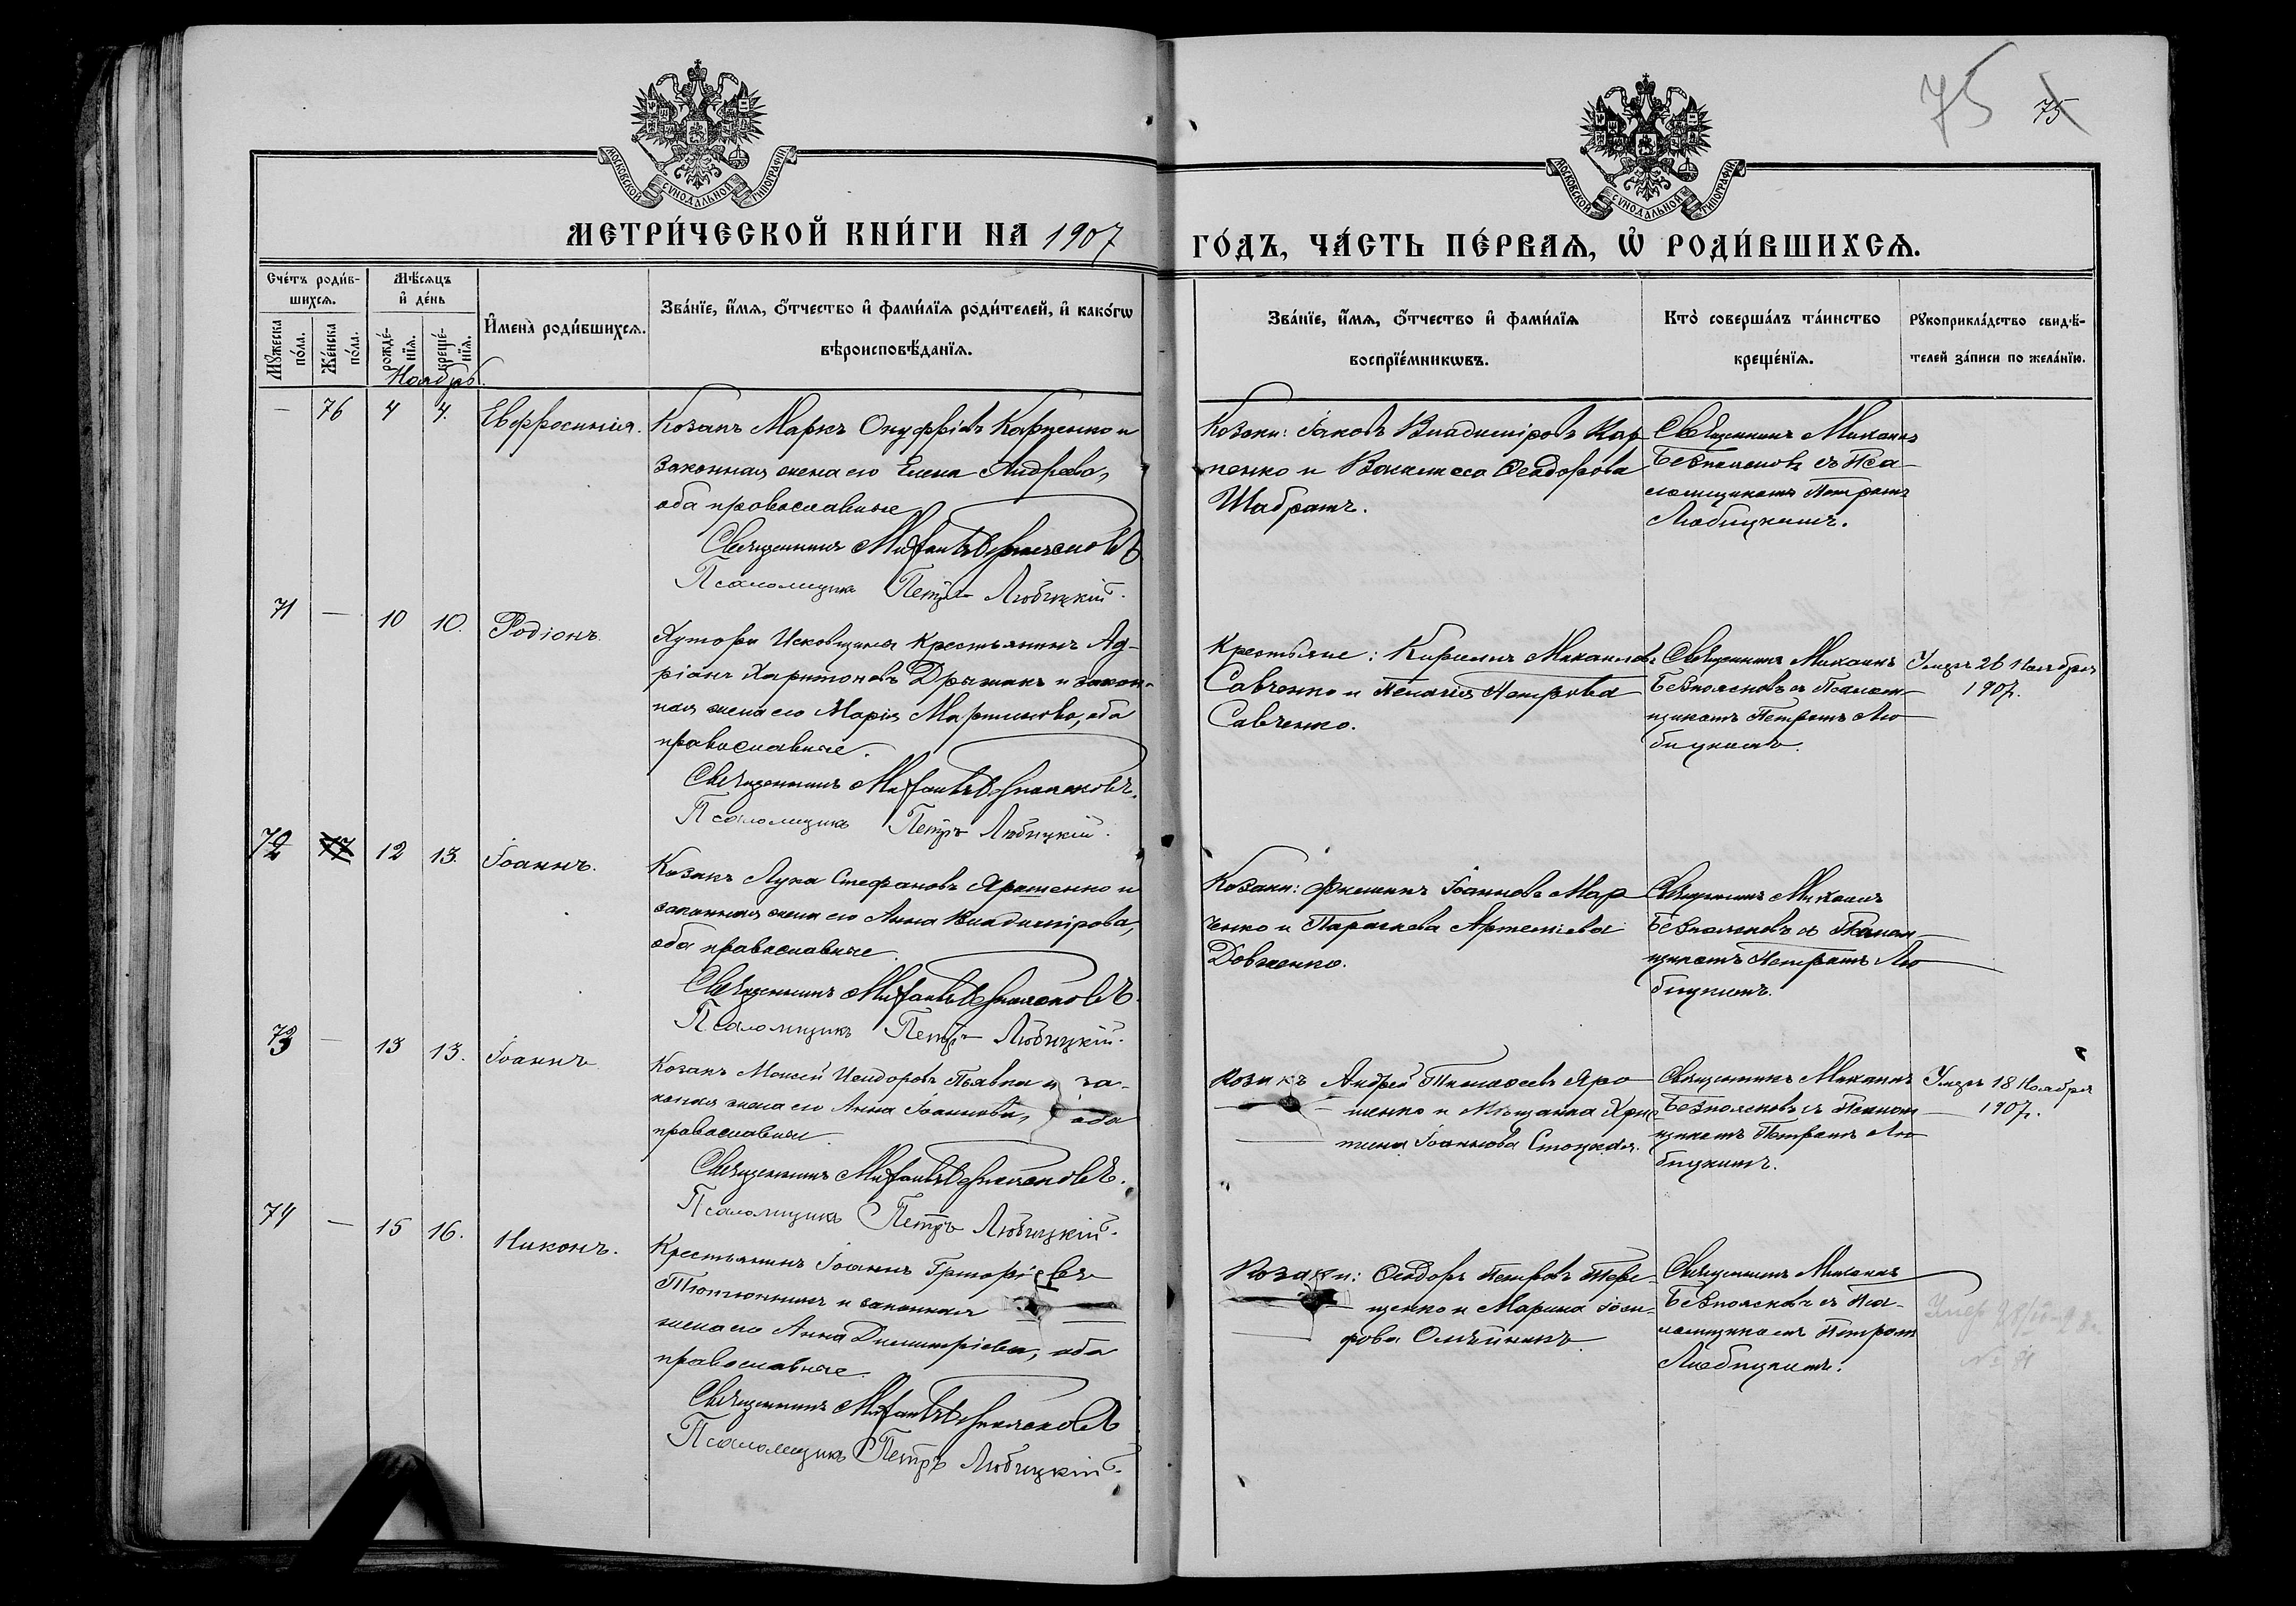 75 75
МОСКОВСКОЙ СѴНОДАЛЬНОЙ ТИПОГРАФІИ
МОСКОВСКОЙ СѴНОДАЛЬНОЙ ТИПОГРАФІИ
МЕТРИ́ЧЕСКОЙ КНИ́ГИ НА 1907
ГО́ДЪ, ЧА́СТЬ ПЕ́РВАѦ, Ѡ҆ РОДИ́ВШИХСѦ.
Сче́тъ роди́в-
шихсѧ.
Мꙋ́жеска по́ла.
Же́нска по́ла.
Мѣ́сѧцъ
и҆ де́нь
рожде́-
нїѧ.
креще́-
нїѧ.
И҆мена̀ роди́вшихсѧ.
Зва́нїе, и҆́мѧ, ѻ҆́тчество и҆ фами́лїѧ роди́телей, и҆ како́гѡ
вѣроисповѣ́данїѧ.
Зва́нїе, и҆́мѧ, ѻ҆́тчество и҆ фами́лїѧ
воспрїе́мникѡвъ.
Кто̀ соверша́лъ та́инство
креще́нїѧ.
Рꙋкоприкла́дство свидѣ́-
телей за́писи по жела́нїю.
Ноябрь.
— 76 4 4. Евфросинія.
Козакъ Маркъ Онуфріевъ Карпенко и
законная жена его Елена Андреева,
оба православные
Священникъ Михаилъ Безпоясновъ
Псаломщикъ Петръ Любицкій.
Козаки: Іаковъ Владиміровъ Кар
пенко и Васса Ѳеодорова
Шабратъ.
Священникъ Михаилъ
Безпоясновъ съ Пса-
ломщикомъ Петромъ
Любицкимъ.
71 — 10 10. Родіонъ.
Хутора Исковщина Крестьянинъ Ад-
ріанъ Харитоновъ Дрыжакъ и закон-
ная жена его Марія Мартинова, оба
православные.
Священникъ Михаилъ Безпоясновъ.
Псаломщикъ Петръ Любицкій.
Крестьяне: Кириллъ Михаиловъ
Савченко и Пелагія Петрова
Савченко.
Священникъ Михаилъ
Безпоясновъ съ Псалом-
щикомъ Петромъ Лю
бицкимъ.
Умеръ 26 Ноября
1907.
72 77 12 13. Іоаннъ.
Козакъ Лука Стефановъ Ярошенко и
законная жена его Анна Владимірова,
оба православные.
Священникъ Михаилъ Безпоясновъ.
Псаломщикъ Петръ Любицкій.
Козаки: Филиппъ Іоанновъ Мар
ченко и Параскева Артеміева
Довженко.
Священникъ Михаилъ
Безпоясновъ съ Псалом-
щикомъ Петромъ Лю
бицкимъ.
73 — 13 13. Іоаннъ
Козакъ Моисей Исидоровъ Пьявка и за-
конная жена его Анна Іоаннова, оба
православные.
Священникъ Михаилъ Безпоясновъ.
Псаломщикъ Петръ Любицкій.
Козакъ Андрей Тимоѳеевъ Яро
шенко и Мѣщанка Хри-
тина Іоаннова Стоцкая.
Священникъ Михаилъ
Безпоясновъ съ Псалом
щикомъ Петромъ Лю
бицкимъ.
Умеръ 18 Ноября
1907.
74 — 15 16. Никонъ.
Крестьянинъ Іоаннъ Григоріевъ
Тютюнникъ и законная
жена его Анна Димитріева, оба
православные.
Священникъ Михаилъ Безпоясновъ
Псаломщикъ Петръ Любицкій.
Козаки: Ѳеодоръ Петровъ Тере-
щенко и Марина
Олѣйникъ.
Священникъ Михаилъ
Безпоясновъ съ Пса-
ломщикомъ Петромъ
Любицкимъ.
Умер